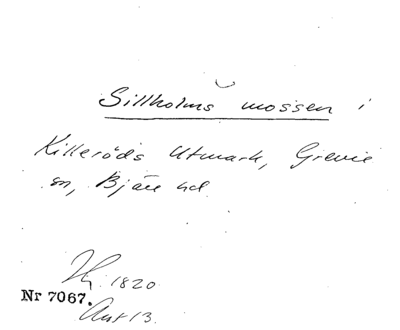 Sillholms mossen i
Killeröds Utmark, Grevie
sn, Bjäre hd
Hj. 1820
Nr 7067.
Ant 13.